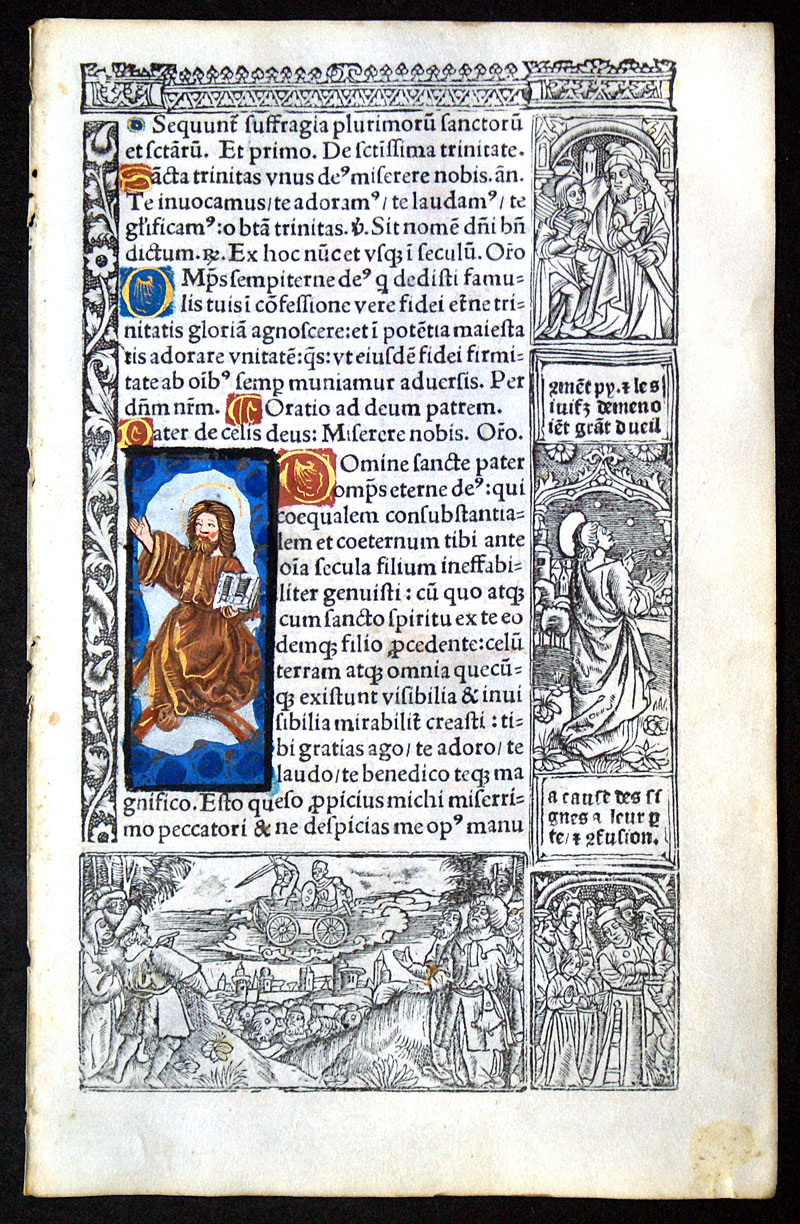 Sequunt̃ suffragia plurimorũ sanctorũ
et sctãrũ. Et primo. De sctissima trinitate.
Sãcta trinitas vnus deꝰ miserere nobis. añ.
Te inuocamus/te adoramꝰ/te laudamꝰ/te
glrificamꝰ:o btã trinitas. ꝟ. Sit nomẽ dñi bñ
dictum. ꝶ. Ex hoc nũc et vsqꝫ ĩ seculũ. Orõ
OMp̃s sempiterne deꝰ q̃ dedisti famu⸗
lis tuis ĩ cõfessione vere fidei et̃ne tri⸗
nitatis gloriã agnoscere:et ĩ potẽtia maiesta
tis adorare vnitatẽ:q̃s: vt eiusdẽ fidei firmi⸗
tate ab oĩbꝰ semp̱ muniamur aduersis. Per
dñm nr̃m. Oratio ad deum patrem.
Pater de celis deus: Miserere nobis. Orõ.
DOmine sancte pater
omp̃s eterne deꝰ:qui
coequalem consubstantia⸗
lem et coeternum tibi ante
oĩa secula filium ineffabi⸗
liter genuisti: cũ quo atqꝫ
cum sancto spiritu ex te eo
demqꝫ filio ꝓcedente:celũ
terram atqꝫ omnia quecũ⸗
qꝫ existunt visibilia & inui
sibilia mirabilit̃ creasti: ti⸗
bi gratias ago/te adoro/te
laudo/te benedico teqꝫ ma
gnifico. Esto queso ꝓpicius michi miserri⸗
mo peccatori & ne despicias me opꝰ manu
ꝯmẽt py. ⁊ les
iuifꝫ demeno
iẽt grãt dueil
a cause des si
gnes a leur ꝑ
te/⁊ ꝯfusion.